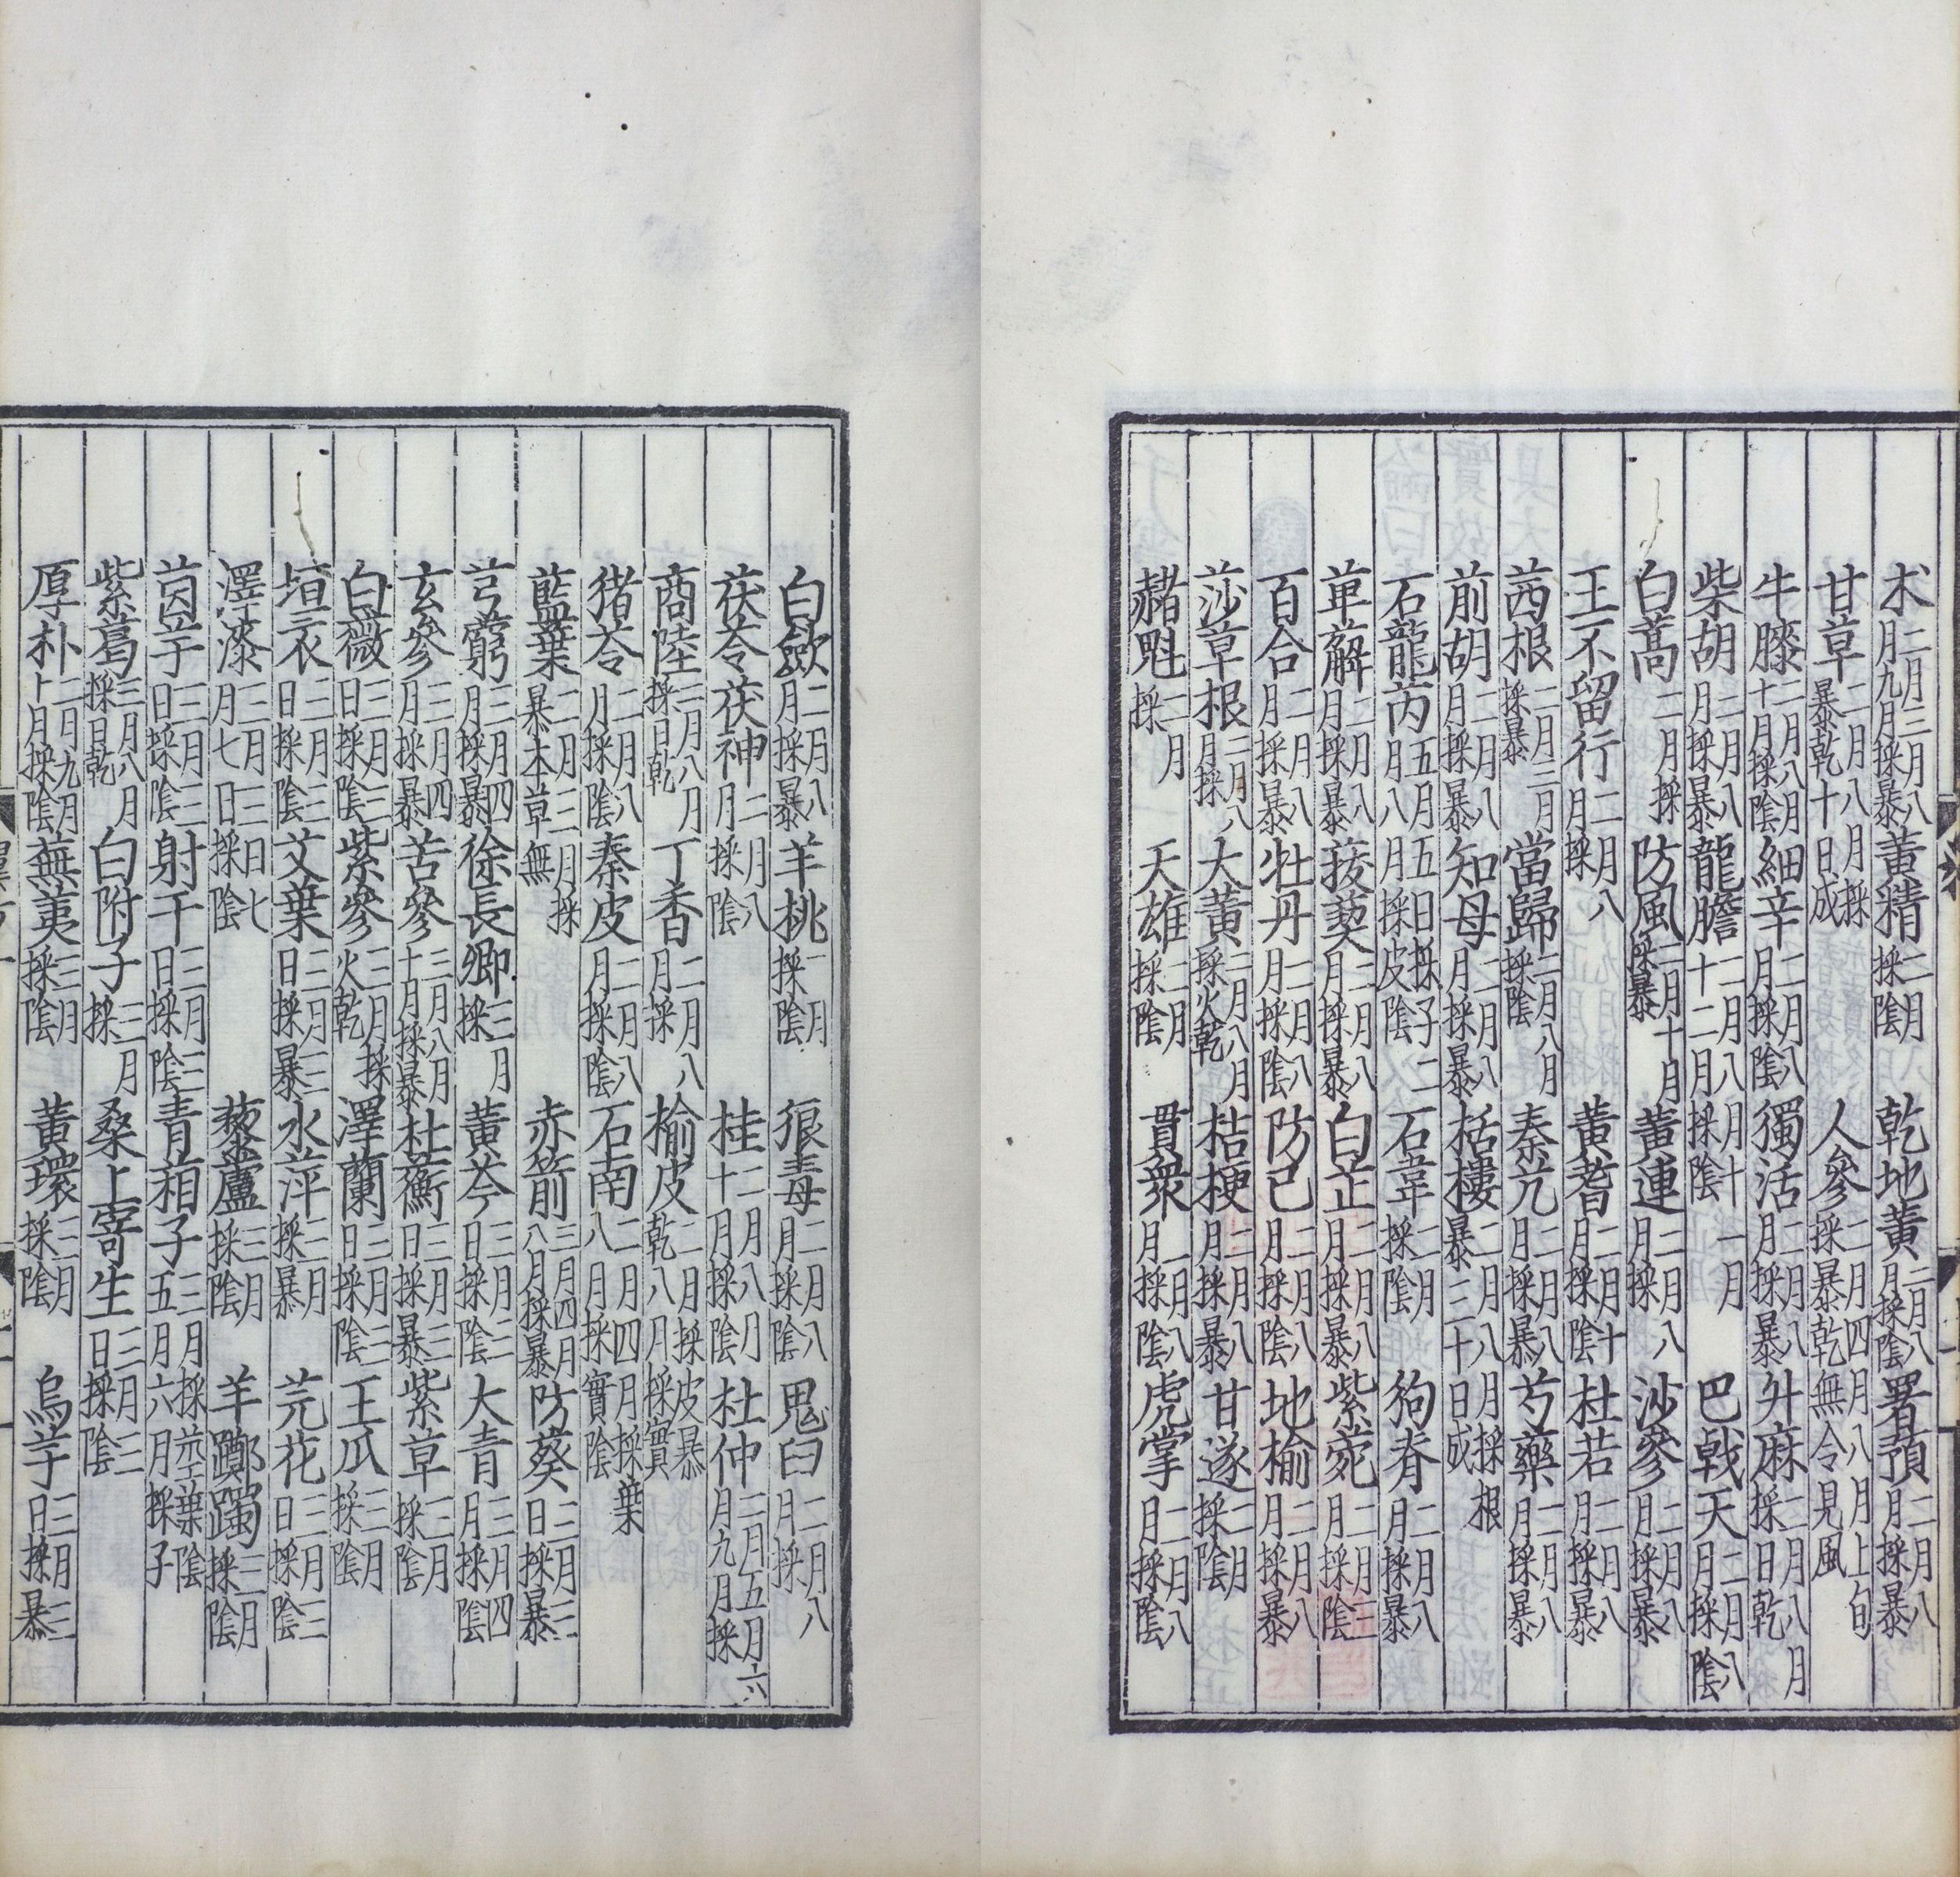 朮二月三月八月九月採暴黃精二月採陰乾地黃二月八月採陰署預二月八月採暴
甘草二月八月採暴乾十日成人參二月四月八月上旬採暴乾無令見風
牛膝二月八月十月採陰細辛二月八月採陰獨活二月八月採暴升麻二月八月採日乾
柴胡二月八月採暴龍膽二月八月十一月十二月採陰巴戟天二月八月採陰
白蒿二月採防風二月十月採暴黃連二月八月採沙參二月八月採暴
王不留行二月八月採黃耆二月十月採陰杜若二月八月採暴
茜根二月三月採暴當歸二月八月採陰秦艽二月八月採暴芍藥二月八月採暴
前胡二月八月採暴知母二月八月採暴栝樓二月八月採根暴三十日成
石龍芮五月五日採子二月八月採皮陰石韋二月採陰狗脊二月八月採暴
萆薢二月八月採暴菝葜二月八月採暴白芷二月八月採暴紫菀二月三月採陰
百合二月八月採暴牡丹二月八月採陰防己二月八月採陰地榆二月八月採暴
莎草根二月八月採大黃二月八月採火乾桔梗二月八月採暴甘遂二月採陰
赭魁二月採天雄二月採陰貫衆二月八月採陰虎掌二月八月採陰
白斂二月八月採暴羊桃二月採陰狼毒二月八月採陰鬼臼二月八月採
茯苓茯神二月八月採陰桂二月八月十月採陰杜仲二月五月六月九月採
商陸二月八月採日乾丁香二月八月採榆皮二月採皮暴乾八月採實
猪苓二月八月採陰秦皮二月八月採陰石南二月四月採葉八月採實陰
藍葉二月三月採暴本草無赤箭三月四月八月採暴防葵三月三日採暴
芎藭三月四月採暴徐長卿三月採黃芩三月三日採陰大青三月四月採陰
玄參三月四月採暴苦參三月八月十月採暴杜蘅三月三日採暴紫草三月採陰
白薇三月三日採陰紫參三月採火乾澤蘭三月三日採陰王瓜三月採陰
垣衣三月三日採陰艾葉三月三日採暴水萍三月採暴芫花三月三日採陰
澤漆三月三日七月七日採陰藜蘆三月採陰羊躑躅三月採陰
茵芋三月三日採陰射干三月三日採陰青葙子三月採莖葉陰五月六月採子
紫葛三月八月採日乾白附子三月採桑上寄生三月三日採陰
厚朴三月九月十月採陰蕪荑三月採陰黃環三月採陰烏芋三月三日採暴